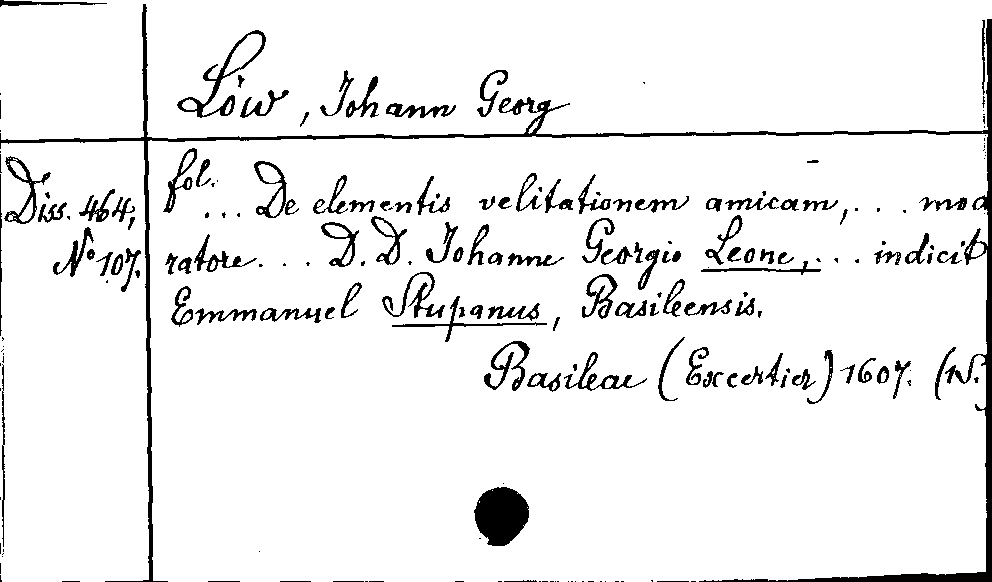 Löw, Johann Georg
Diss. 464,
No 107.
fol.
... De elementis velitationem amicam, ... mod
ratore ... D. D. Johanne Georgio Leone, ... indicit
Emmanuel Stupanus, Basileensis.
Basileae (Excertier) 1607. (W.)